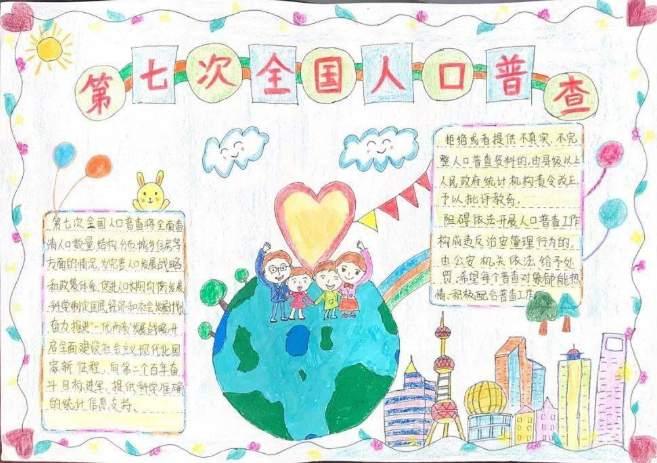 第七次全国人口普查
第七次全国人口普查将全面查
清人口数量、结构、分布、城乡住房等
方面的情况,为完善人口发展战略
和政策体系,促进人口长期均衡发展,
科学制定国民经济和社会发展规划
奋力推进
启全面建设社会主义现代化国
家新征程,向第二个百年奋
斗目标进军,提供科学准确
的统计信息支持。
拒绝或者提供不真实、不完
整人口普查资料的,由县级以上
人民政府统计机构责令改正,
予以批评教育。
阻碍依法开展人口普查工作
构成违反治安管理行为的,
由公安机关依法给予处
罚,希望每个普查对象都能热
情、积极配合普查工作